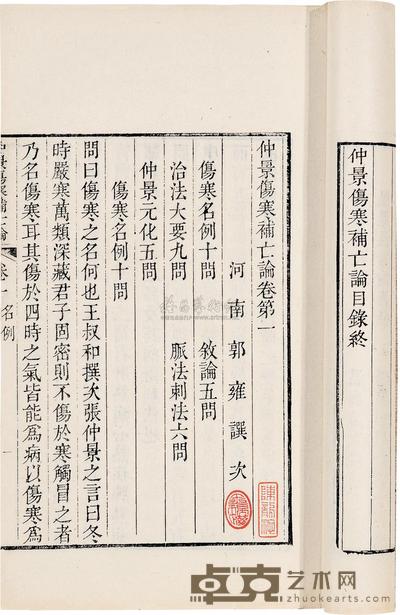 仲景傷寒補亡論目錄終
仲景傷寒補亡論卷第一
河南郭雍譔次
傷寒名例十問　敘論五問
治法大要九問　脈法刺法六問
仲景元化五問
傷寒名例十問
問曰傷寒之名何也王叔和撰次張仲景之言曰冬
時嚴寒萬類深藏君子固密則不傷於寒觸冒之者
乃名傷寒耳其傷於四時之氣皆能為病以傷寒為
仲景傷寒補亡論　卷一　名例　一
卓克艺术网
www.zhuokearts.com